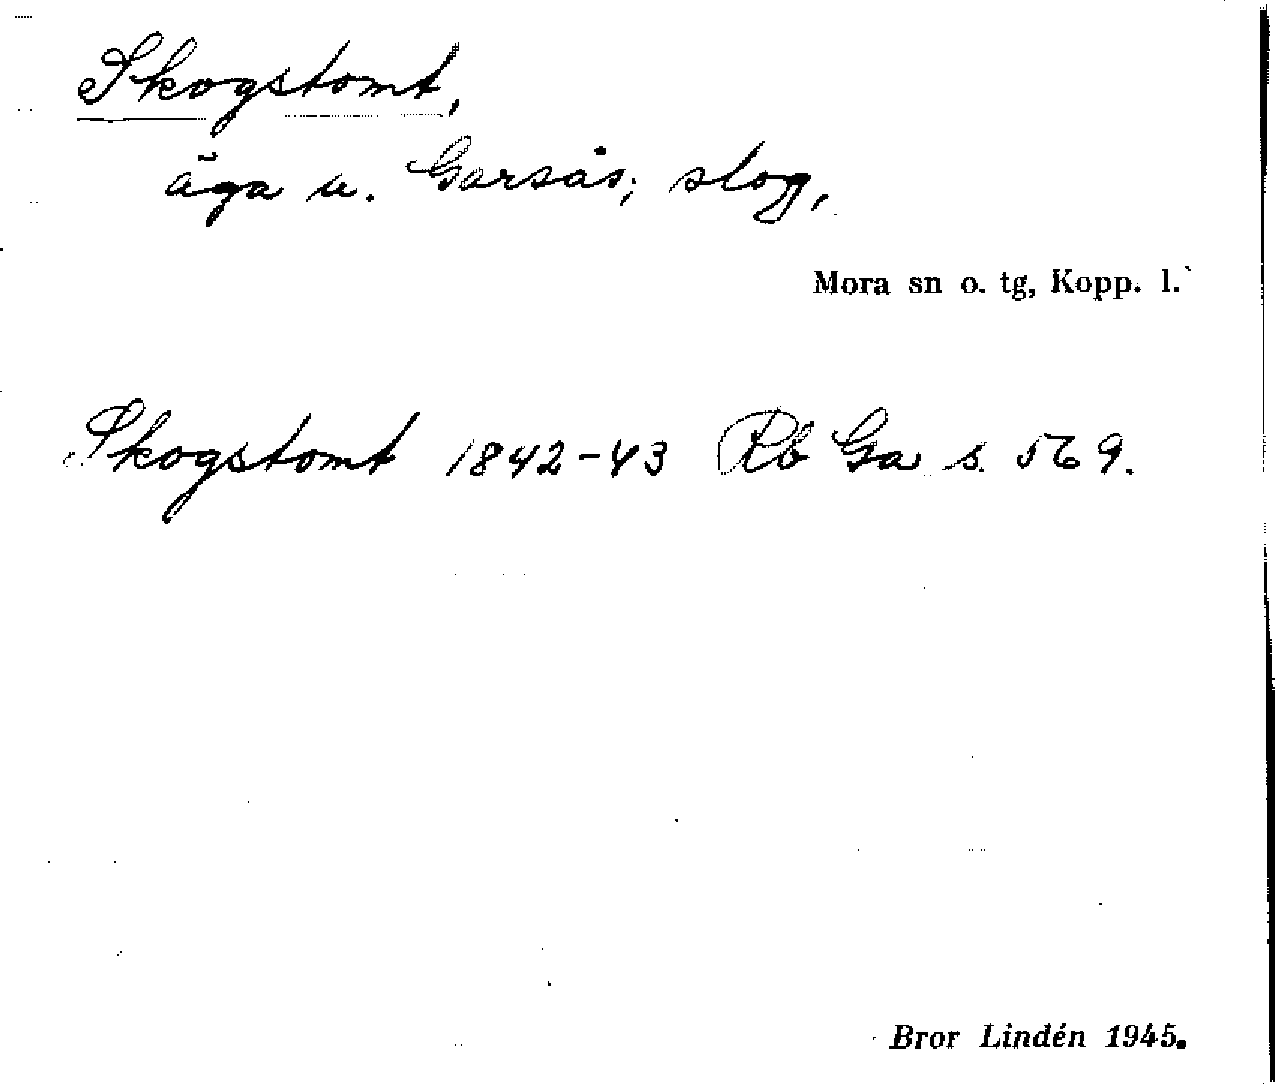 Skogstomt,
äga u. Garsås; slog,
Mora sn o. tg, Kopp. l.
Skogstomt 1842-43 Rb Ga s. 569.
Bror Lindén 1945.